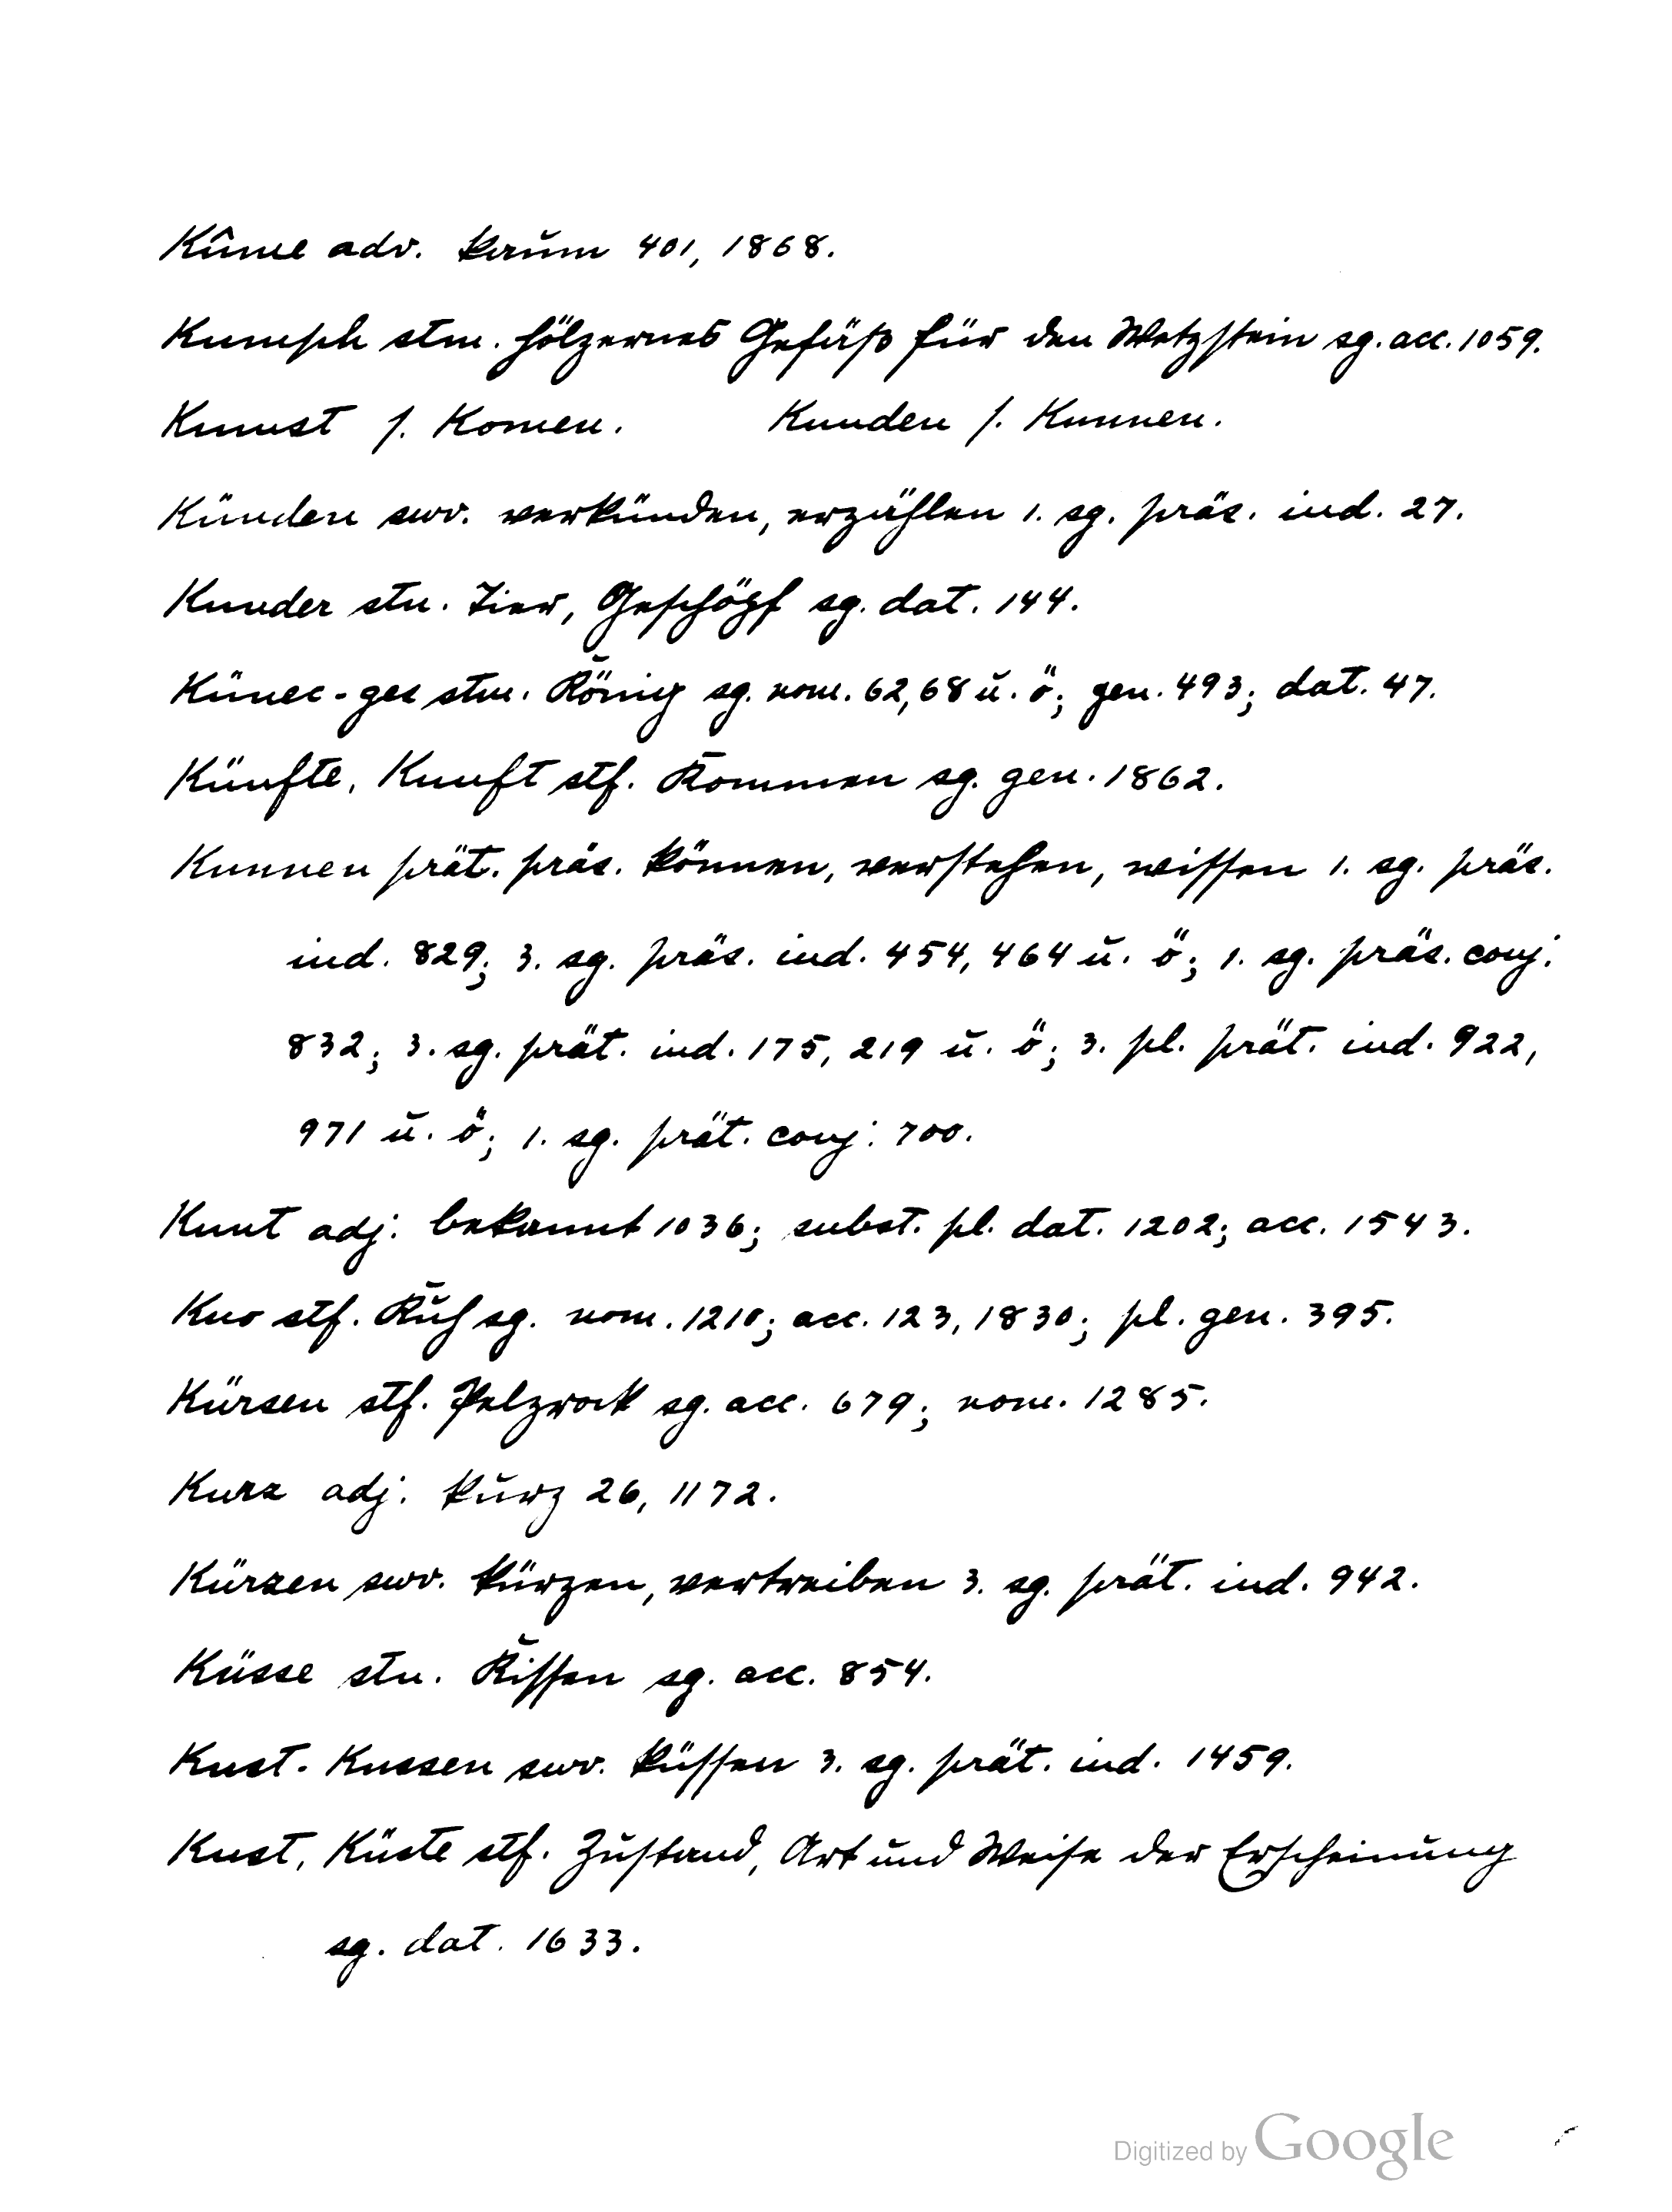 Kûme adv. kaum 401, 1868.
Kumph stm. hölzernes Gefäß für den Wetzstein sg. acc. 1059.
Kumst s. Komen. Kunden s. Kunnen.
Künden swv. verkünden, erzählen 1. sg. präs. ind. 27.
Kunder stn. Tier, Geschöpf sg. dat. 144.
Künec-ges stm. König sg. nom. 62, 68 u. ö; gen. 493; dat. 47.
Künfte, Kunft stf. Kommen sg. gen. 1862.
Kunnen prät. präs. können, verstehen, wissen 1. sg. präs.
ind. 829; 3. sg. präs. ind. 454, 464 u. ö; 1. sg. präs. conj.
832; 3. sg. prät. ind. 175, 219 u. ö; 3. pl. prät. ind. 922,
971 u. ö; 1. sg. prät. conj. 700.
Kunt adj. bekannt 1036; subst. pl. dat. 1202; acc. 1543.
Kuo stf. Kuh sg. nom. 1210; acc. 123, 1830; pl. gen. 395.
Kürsen stf. Pelzrock sg. acc. 679; nom. 1285.
Kurz adj. kurz 26, 1172.
Kürzen swv. kürzen, vertreiben 3. sg. prät. ind. 942.
Küsse stn. Kissen sg. acc. 854.
Kust. Kussen swv. küssen 3. sg. prät. ind. 1459.
Kust, Küste stf. Zustand, Art und Weise der Erscheinung
sg. dat. 1633.
Digitized by Google